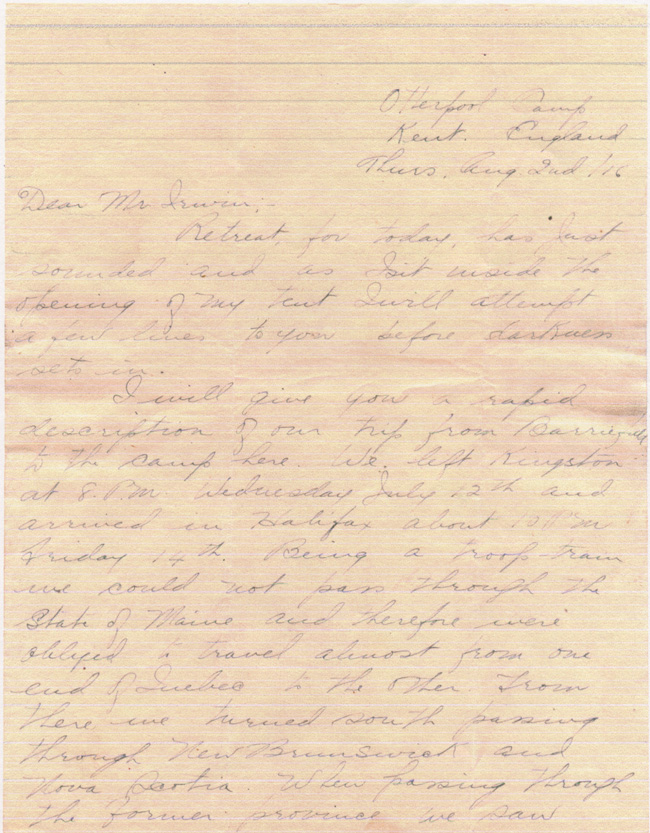 Otterpool Camp
Kent. England
Thurs. Aug 2nd /16
Dear Mr Irwin;-
Retreat, for today, has just
sounded and as I sit inside the
opening of my tent I will attempt
a few lines to you before darkness
sets in.
I will give you a rapid
description of our trip from Barriefield
to the camp here. We left Kingston
at 8. P.M Wednesday July 12th and
arrived in Halifax about P.M
Friday 14th. Being a troop-train
we could not pass through the
State of Maine and therefore were
obliged to travel almost from one
end of Quebec to the other. From
there we turned south passing
through New Brunswick and
Nova Scotia. When passing through
the former province we saw